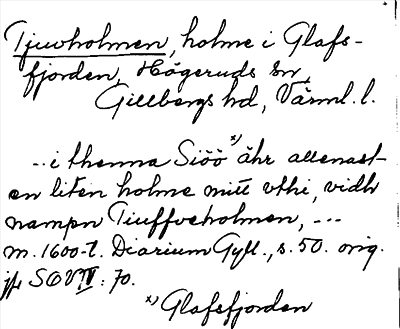 Tjuvholmen, holme i Glafs-
fjorden, Högeruds sn,
Gillbergs hd, Värml. l.
... i thenna Siöö x) ähr allenast
en liten holme mitt vthi, vidh
nampn Tiuffveholmen, ...
m. 1600-t. Diarium Gyll., s. 50. orig.
jfr SOV IV: 70.
x) Glafsfjorden